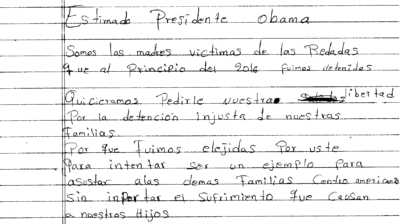 Estimado Presidente Obama
Somos las madres victimas de las Redadas
que al Principio del 2016 fuimos detenidas
Quicieramos Pedirle nuestra libertad
Por la detencion injusta de nuestras
Familias
Por que Fuimos elejidas Por uste
Para intentar ser un ejemplo para
asustar alas demas Familias Centro americanas
sin inportar el Sufrimiento que Causan
a nuestros Hijos